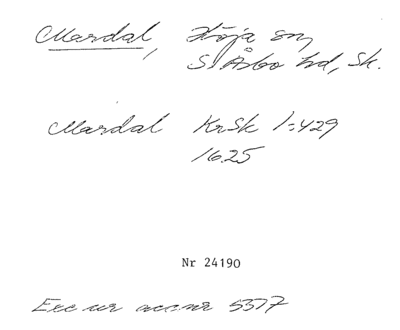 Mardal, Höja sn,
S. Åsbo hd, Sk.
Mardal KrSk 1:429
1625
Nr 24190
Exc ur acc nr 5517